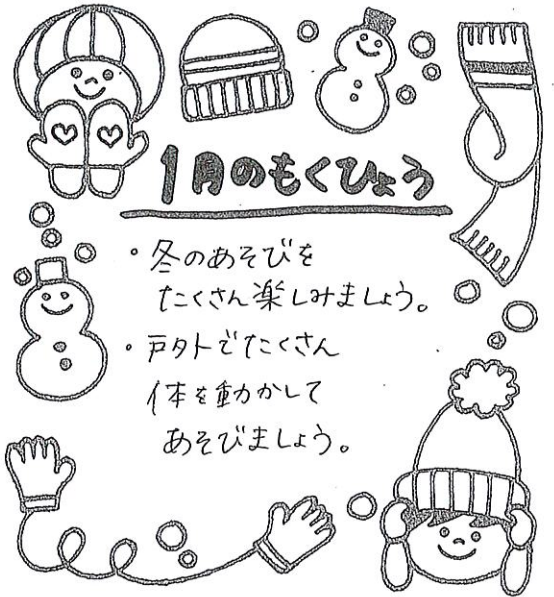 1月のもくひょう
・冬のあそびを
たくさん楽しみましょう。
・戸外でたくさん
体を動かして
あそびましょう。